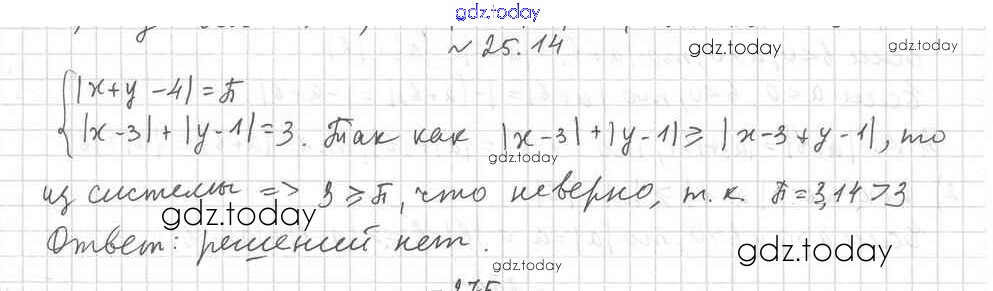 gdz.today
~ 25.14
gdz.today
gdz.today
{|x+y-4|=π
|x-3|+|y-1|=3. Так как |x-3|+|y-1|⩾|x-3+y-1|, то
gdz.today
из системы => 3⩾π, что неверно, т.к. π=3,14>3
gdz.today
Ответ: решений нет.
gdz.today
gdz.today